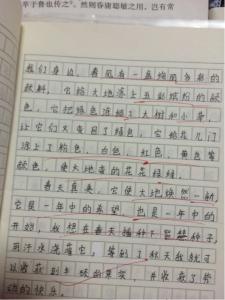 卒于鲁也传之。然则昏庸聪敏之用，岂有常
我们身边，春风有一盒绚丽多彩的
颜料，它给大地涂上五彩缤纷的颜
色，它把绿色涂给了大树和小草，
让它们又变回了绿色，它给花儿们
涂上了粉色、白色、红色、黄色等
颜色，使大地变的花花绿绿。
春天真美，它使大地焕然一新，
它是一年中的希望，也是一年中的
开始，我想在春天播种下
种子，
用汗水浇灌它，等到了秋天我就可
以收获到丰硕的果实，并收获了劳
动的快乐。